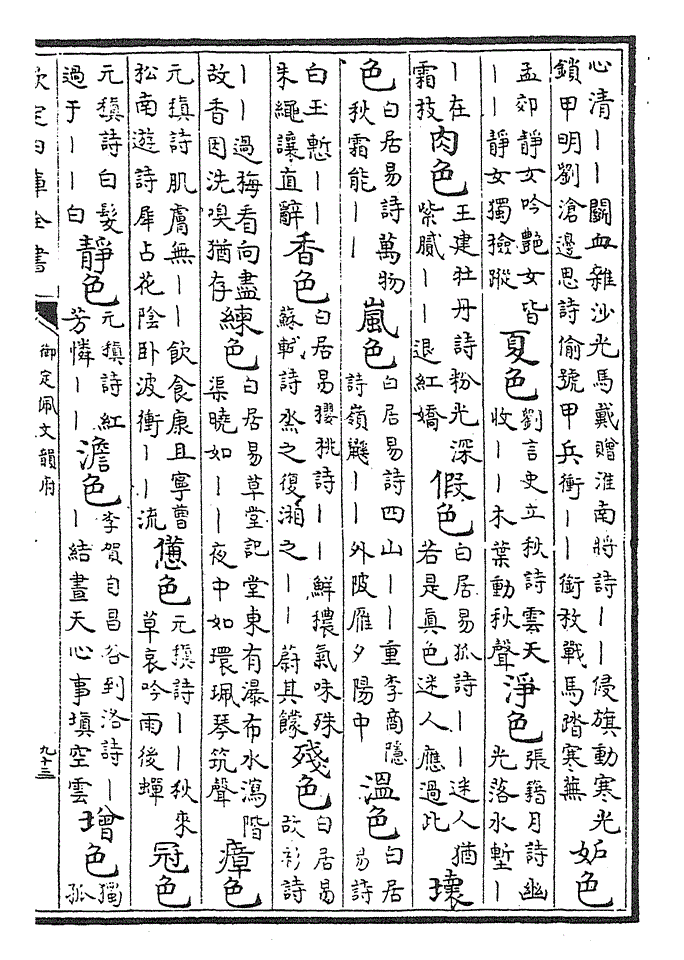 心清丨丨鬬血雜沙光馬戴贈淮南將詩丨丨侵旗動寒光
鎖甲明劉滄邊思詩偷號甲兵衝丨丨銜枚戰馬踏寒蕪
妬色
孟郊靜女吟艷女皆
丨丨靜女獨撿蹤
夏色
劉言史立秋詩雲天
收丨丨木葉動秋聲
淨色
張籍月詩幽
光落水塹丨
丨在
霜枝
肉色
王建牡丹詩粉光深
紫膩丨丨退紅嬌
假色
白居易狐詩丨丨迷人猶
若是真色迷人應過此
壞
色
白居易詩萬物
秋霜能丨丨
嵐色
白居易詩四山丨丨重李商隱
詩嶺鼷丨丨外陂雁夕陽中
溫色
白居
易詩
白玉慙丨丨
朱繩讓直辭
香色
白居易櫻桃詩丨丨鮮穠氣味殊
蘇軾詩烝之復湘之丨丨蔚其饛
殘色
白居易
故衫詩
丨丨過梅看向盡
故香因洗嗅猶存
練色
白居易草堂記堂東有瀑布水瀉階
渠曉如丨丨夜中如環珮琴筑聲
瘴色
元稹詩肌膚無丨丨飲食康且寧曹
松南遊詩犀占花陰臥波衝丨丨流
憊色
元稹詩丨丨秋來
草哀吟雨後蟬
冠色
元稹詩白髮
過于丨丨白
靜色
元稹詩紅
芳憐丨丨
澹色
李賀自昌谷到洛詩丨
丨結晝天心事填空雲
增色
獨
孤
欽定四庫全書
御定佩文韻府
九十三